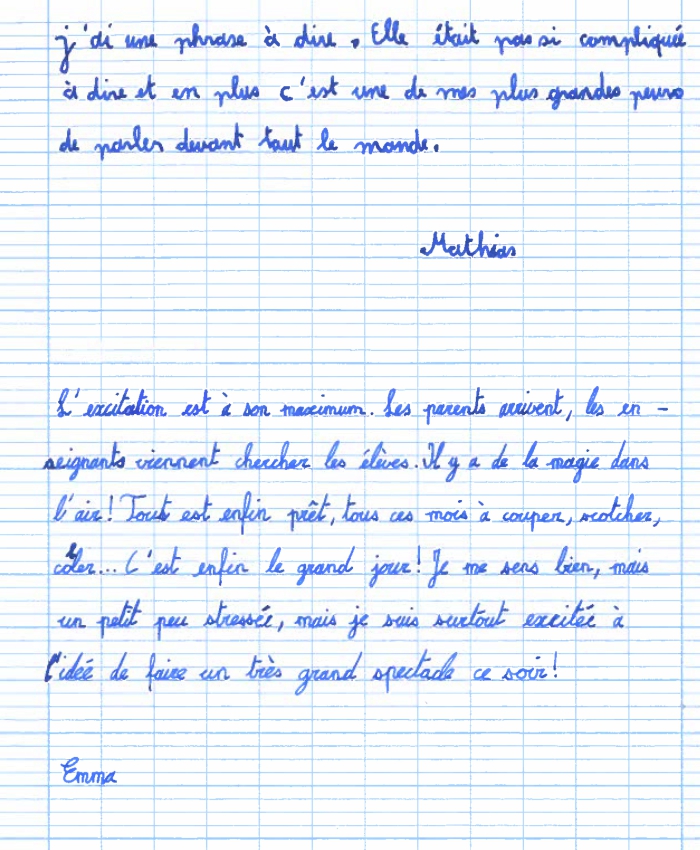 j'di une phrase à dire. Elle était pas si compliquée
à dire et en plus c'est une de mes plus grandes peurs
de parler devant tout le monde.
Mathias
L'excitation est à son maximum. Les parents arrivent, les en-
seignants viennent chercher les élèves. Il y a de la magie dans
l'air! Tout est enfin prêt, tous ces mois à couper, scotcher,
coller... C'est enfin le grand jour! Je me sens bien, mais
un petit peu stressée, mais je suis surtout excitée à
l'idéé de faire un très grand spectacle ce soir!
Emma